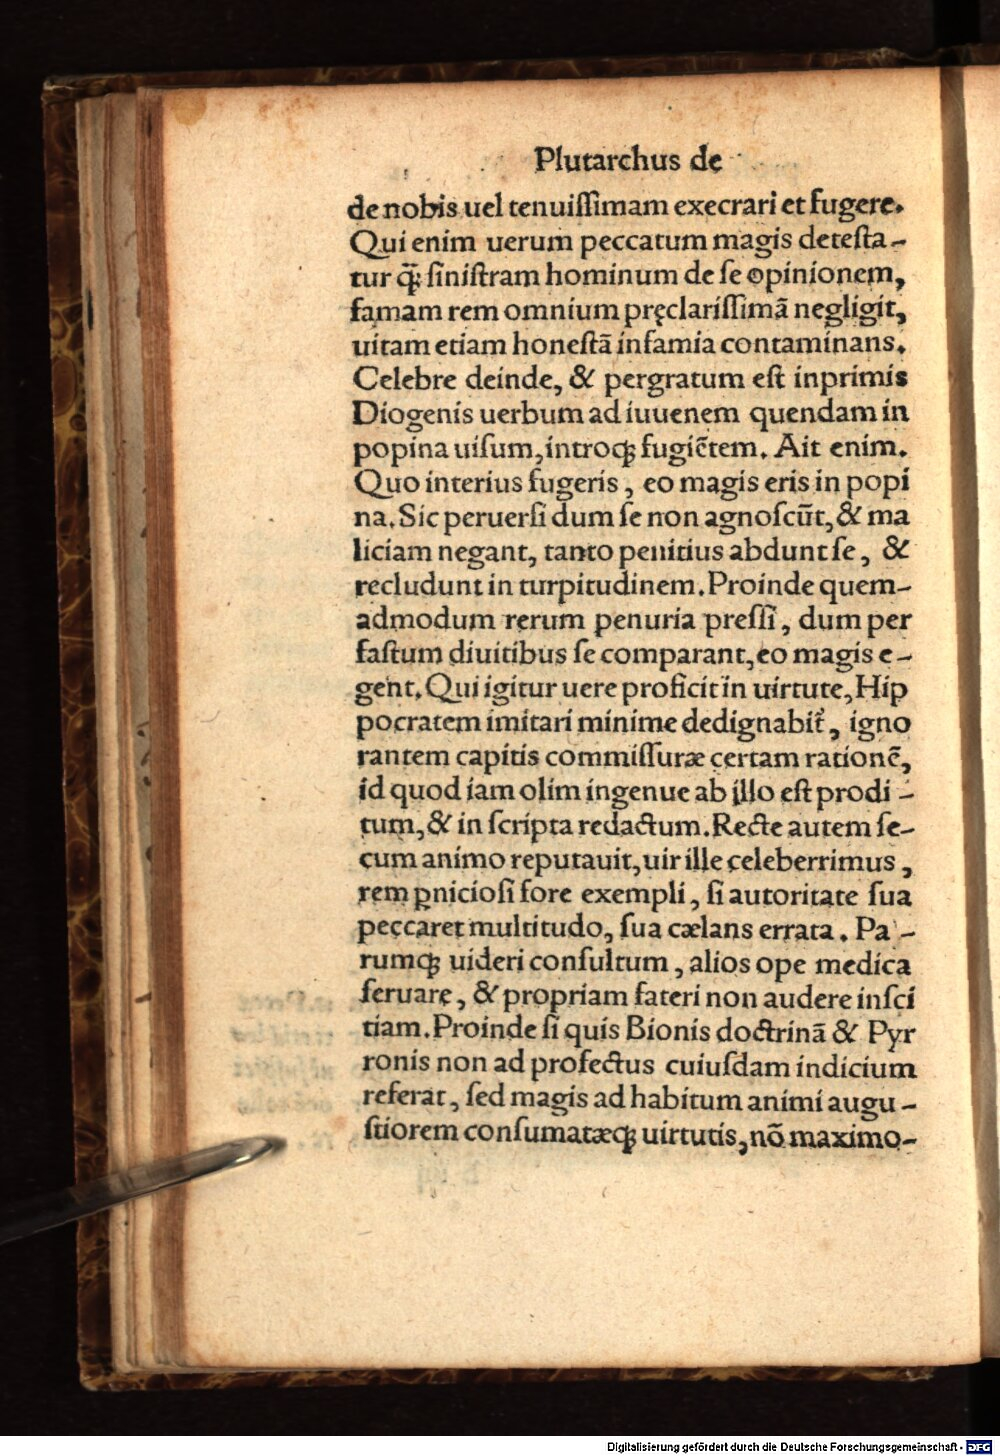 Plutarchus de
de nobis uel tenuiſſimam execrari et fugere.
Qui enim uerum peccatum magis deteſta-
tur q̃ꝫ ſiniſtram hominum de ſe opinionem,
famam rem omnium pręclariſſimã negligit,
uitam etiam honeſtã infamia contaminans.
Celebre deinde, & pergratum eſt inprimis
Diogenis uerbum ad iuuenem quendam in
popina uiſum, introqꝫ fugiẽtem. Ait enim.
Quo interius fugeris, eo magis eris in popi
na. Sic peruerſi dum ſe non agnoſcũt, & ma
liciam negant, tanto penitius abdunt ſe, &
recludunt in turpitudinem. Proinde quem-
admodum rerum penuria preſſi, dum per
faſtum diuitibus ſe comparant, eo magis e-
gent. Qui igitur uere proficit in uirtute, Hip
pocratem imitari minime dedignabit᷑, igno
rantem capitis commiſſuræ certam rationẽ,
id quod iam olim ingenue ab illo eſt prodi-
tum, & in ſcripta redactum. Recte autem ſe-
cum animo reputauit, uir ille celeberrimus,
rem ꝑnicioſi fore exempli, ſi autoritate ſua
peccaret multitudo, ſua cælans errata. Pa-
rumqꝫ uideri conſultum, alios ope medica
ſeruare, & propriam fateri non audere inſci
tiam. Proinde ſi quis Bionis doctrinã & Pyr
ronis non ad profectus cuiuſdam indicium
referat, ſed magis ad habitum animi augu-
ſtiorem conſumatæqꝫ uirtutis, nõ maximo-
Digitalisierung gefördert durch die Deutsche Forschungsgemeinschaft - DFG